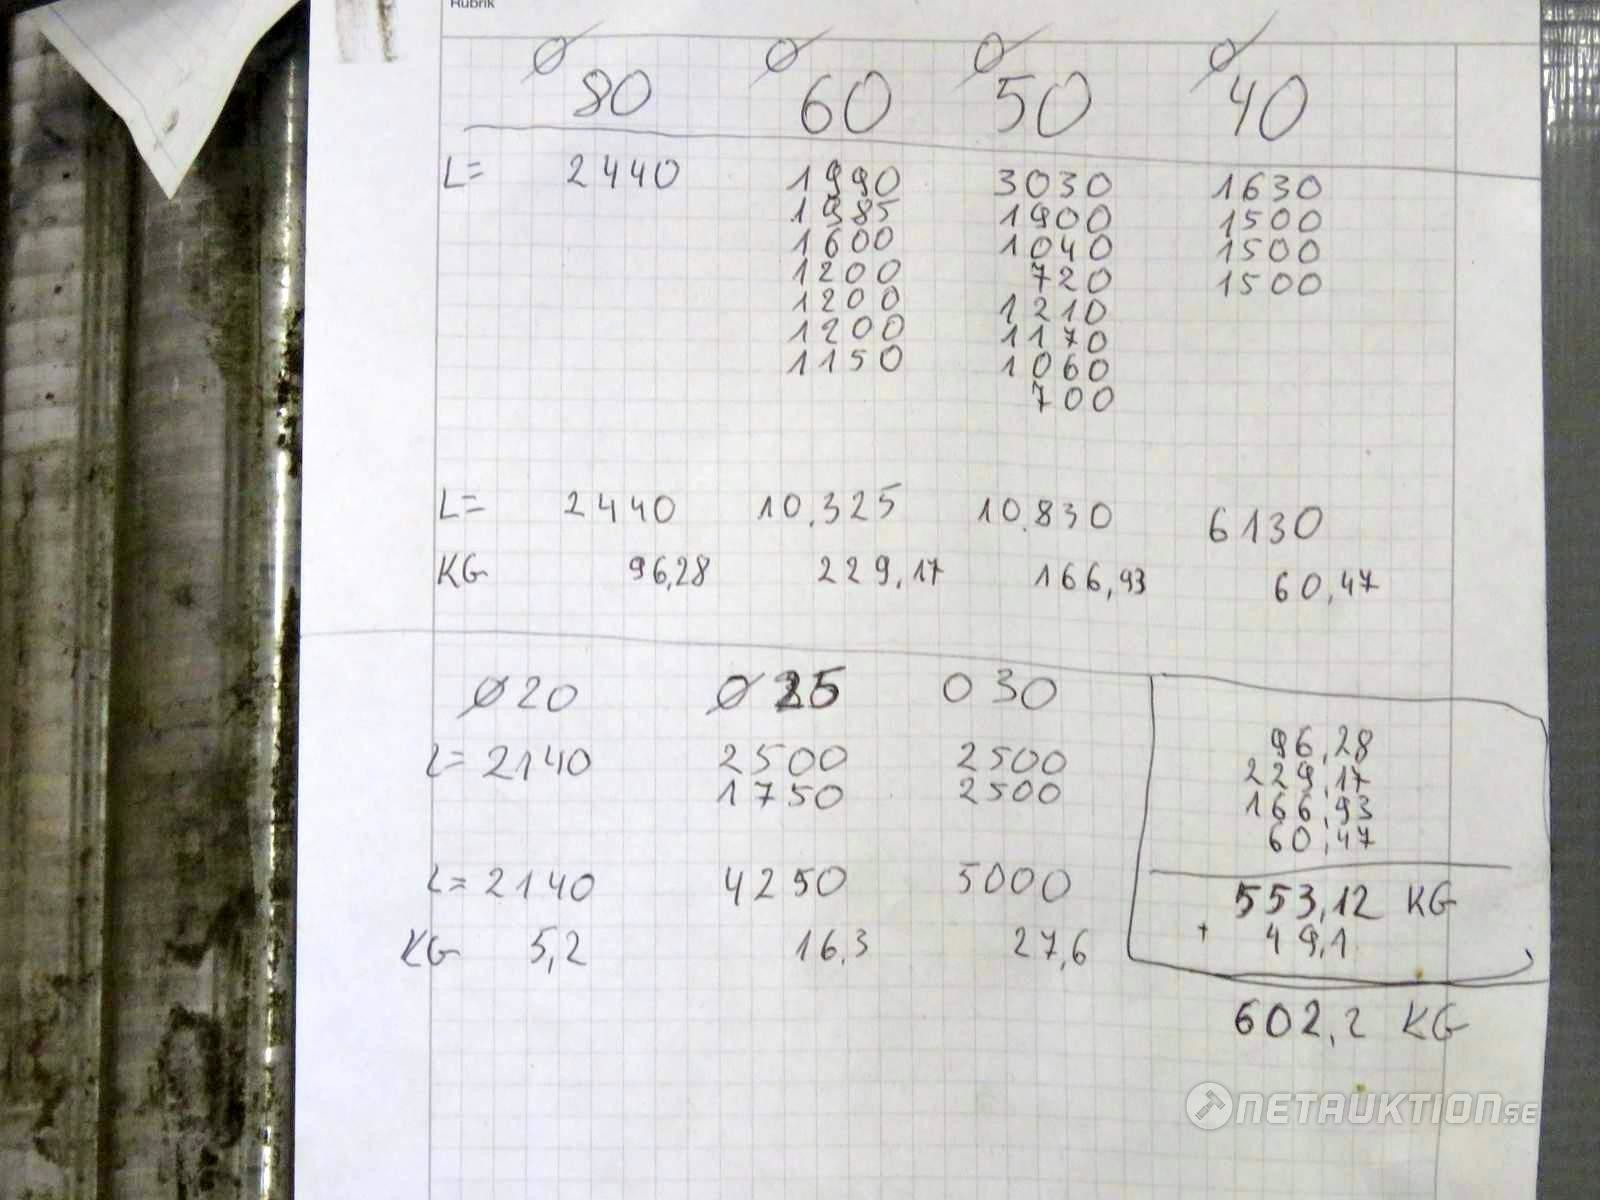 Rubrik
Ø 80 Ø 60 Ø 50 Ø 40
L= 2440 1990 3030 1630
1985 1900 1500
1600 1040 1500
1200 720 1500
1200 1210
1200 1170
1150 1060
700
L= 2440 10.325 10.830 6130
KG 96,28 229,17 166,93 60,47
Ø20 Ø 25 O 30
L= 2140 2500 2500
1750 2500
L= 2140 4250 5000
KG 5,2 16,3 27,6
96,28
229,17
166,93
60,47
553,12 KG
+ 49,1
602,2 KG
NETAUKTION.SE